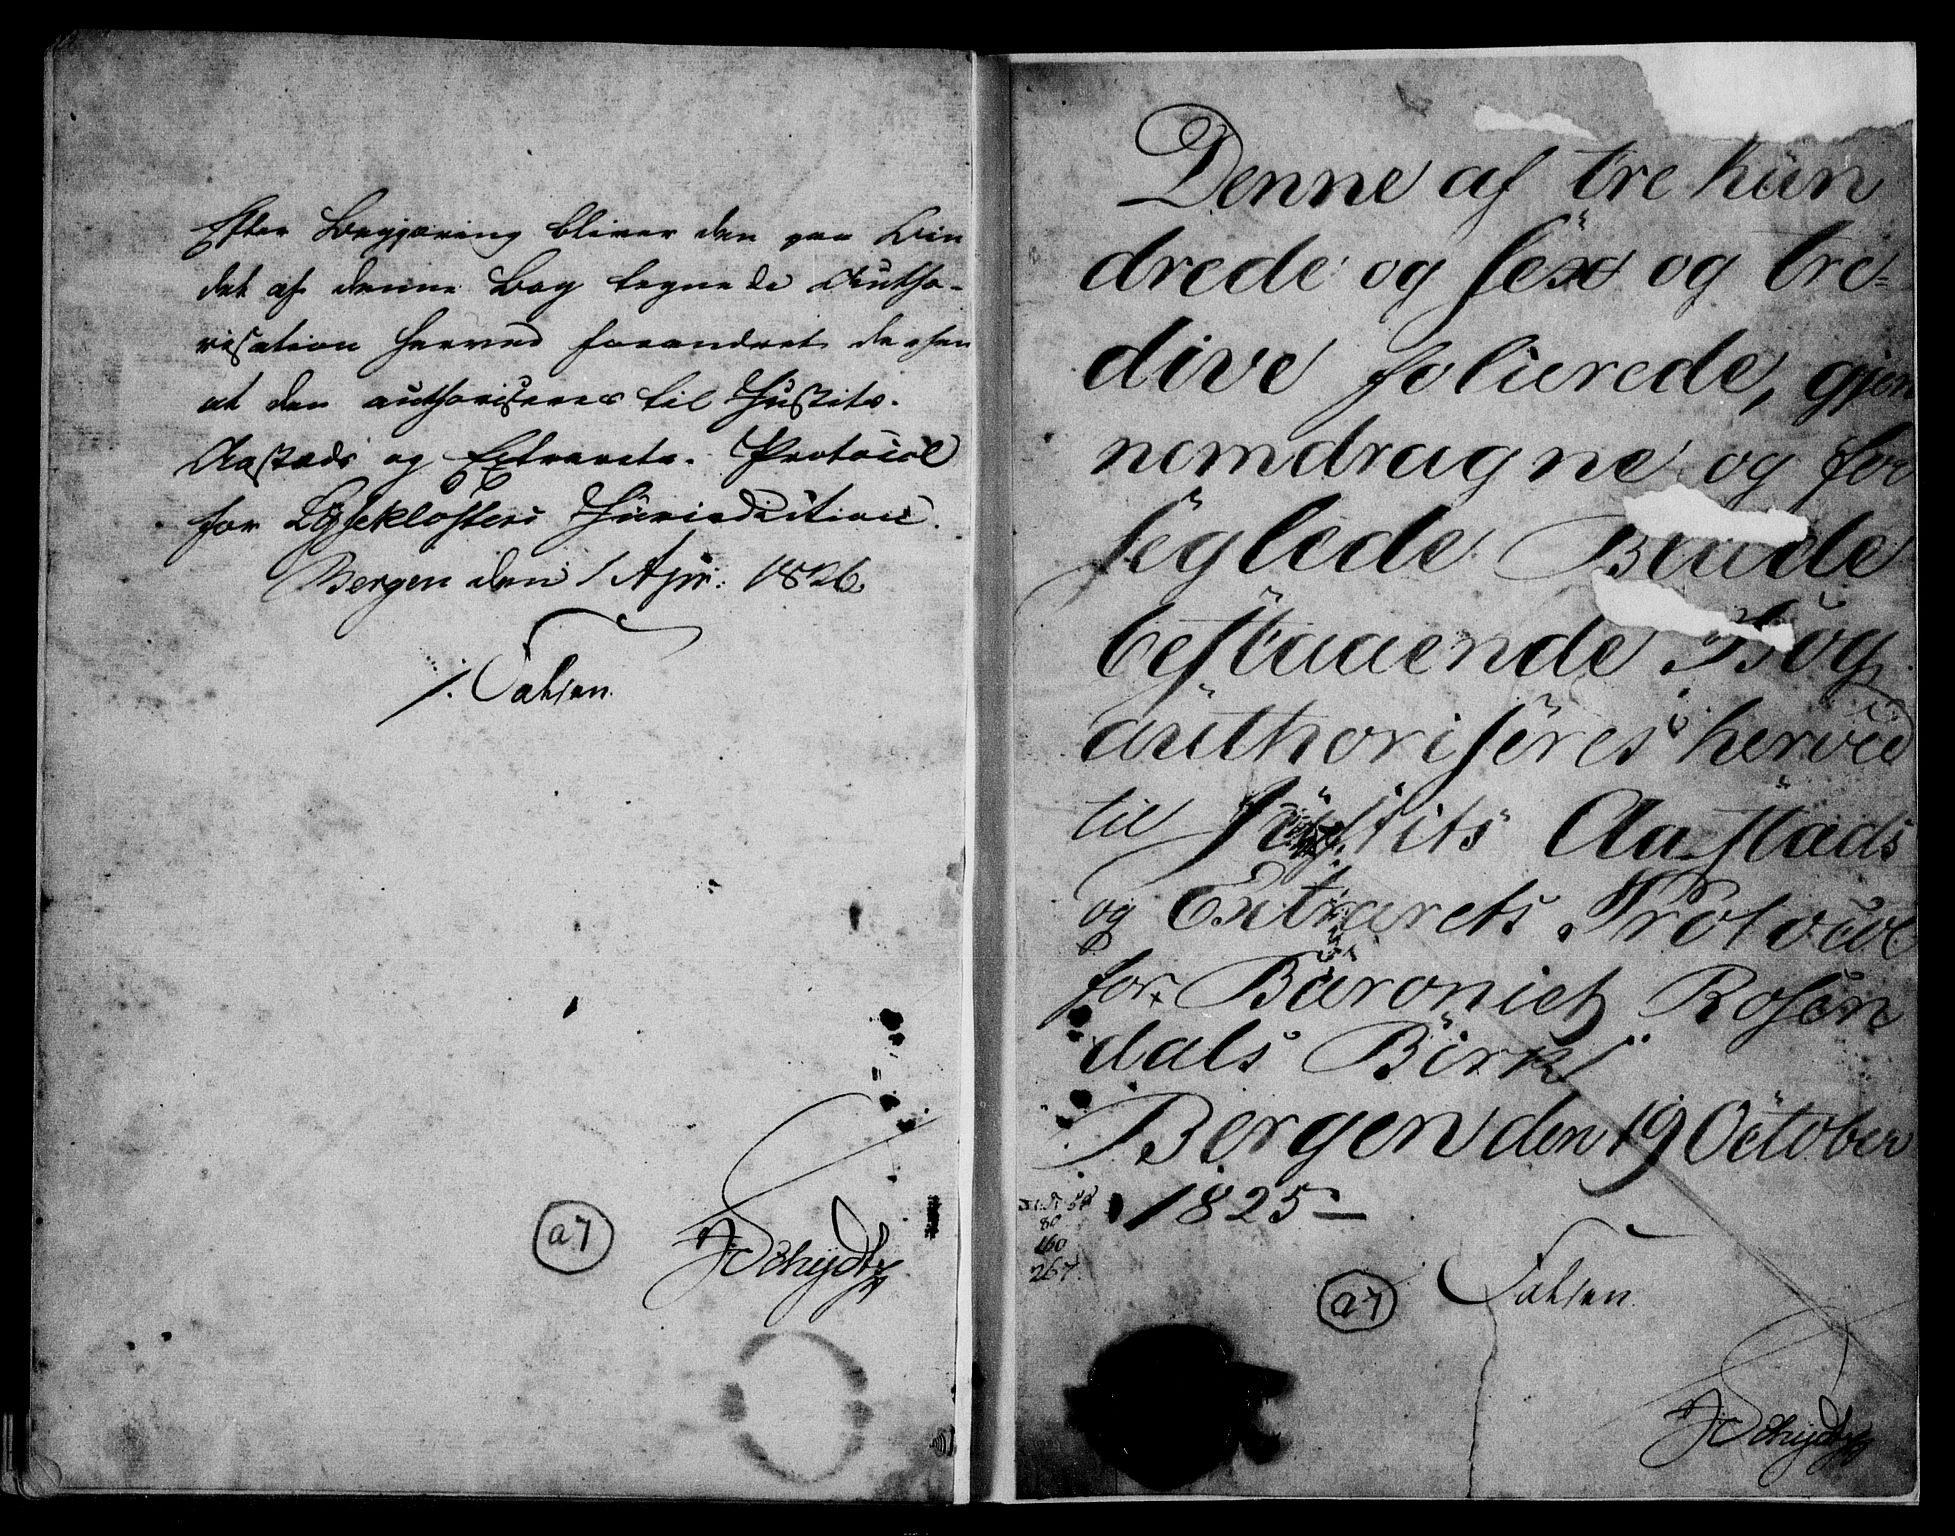 Efter Begjæring bliver den paa Bin
det af denne Bog tegnede Autho-
risation herved forandret derhen
at den authoriseres til Justits-
Aastæds og Extrarets-Protocol
for Lysekloster Jurisdiction.
Bergen den 1 Apr. 1826.
Falsen
a.7
JSchydtz
Denne af tre hun
drede og sex og tre=
dive folierede, gjen
nemdragne og for
seglede Blade
bestaaende Bog
authoriseres herved
til Justits Aastæds
og Extrarets Protocol
for Baroniet Rosen
dals Birk
Bergen den 19 October
1825 –
80
160
267.
Falsen
a7
JSchydtz